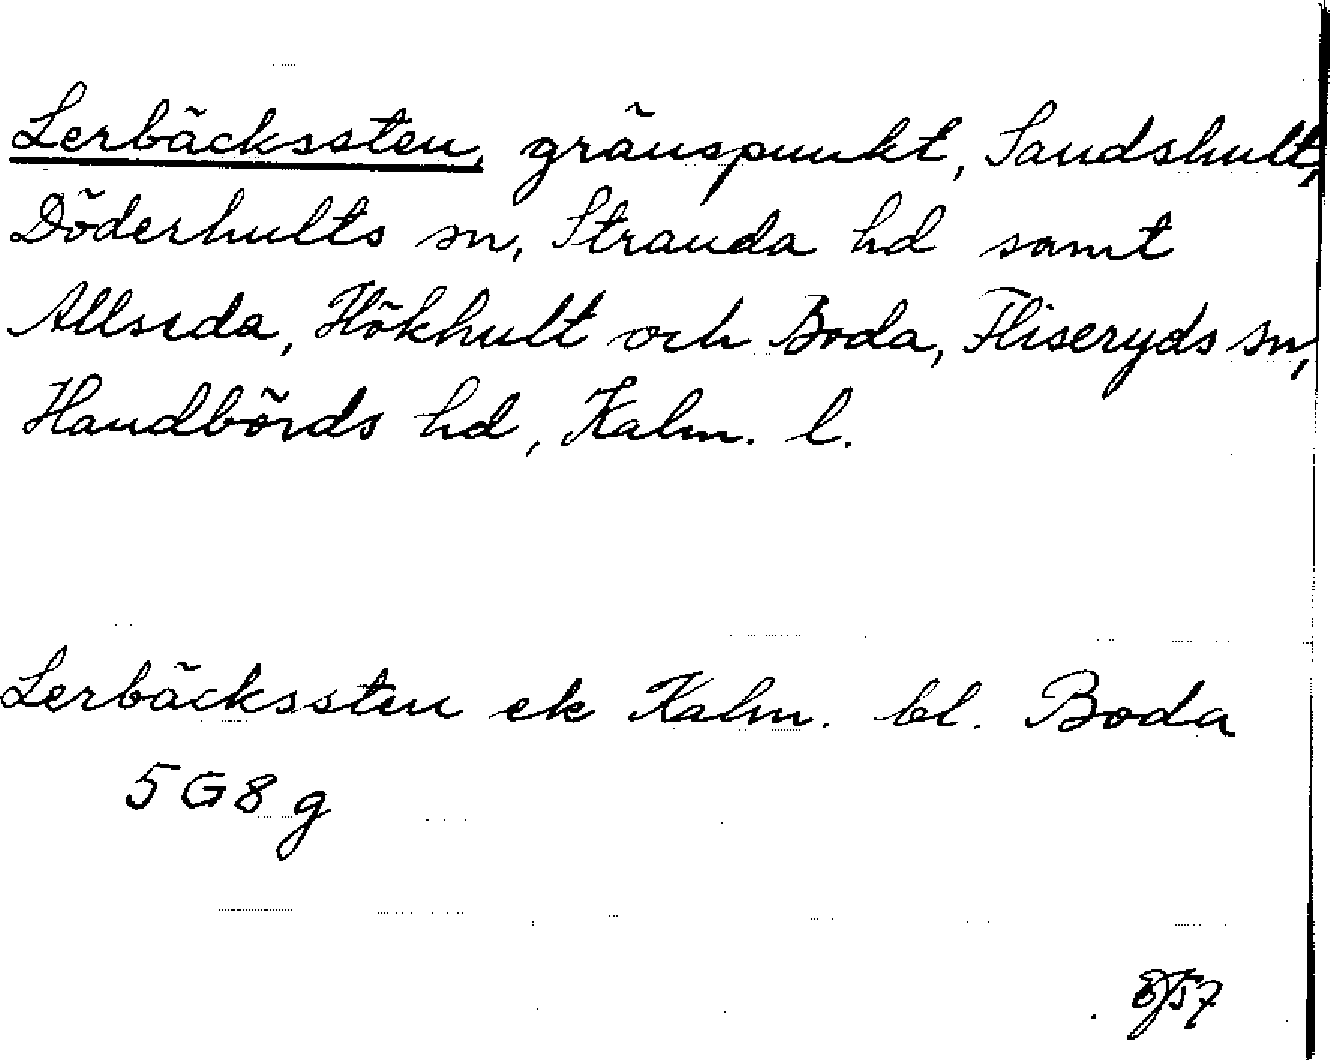 Lerbäckssten, gränspunkt, Sandshult,
Döderhults sn, Stranda hd samt
Allsida, Hökhult och Boda, Fliseryds sn,
Handbörds hd, Kalm. l.
Lerbäckssten ek Kalm. bl. Boda
5G8g